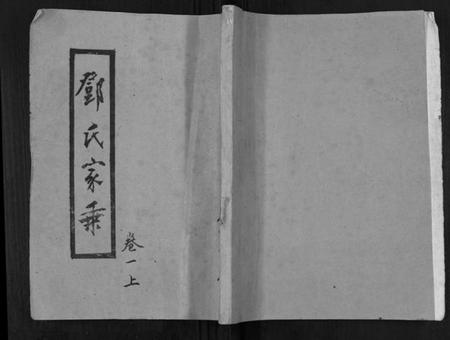 鄧氏家乗
卷一上